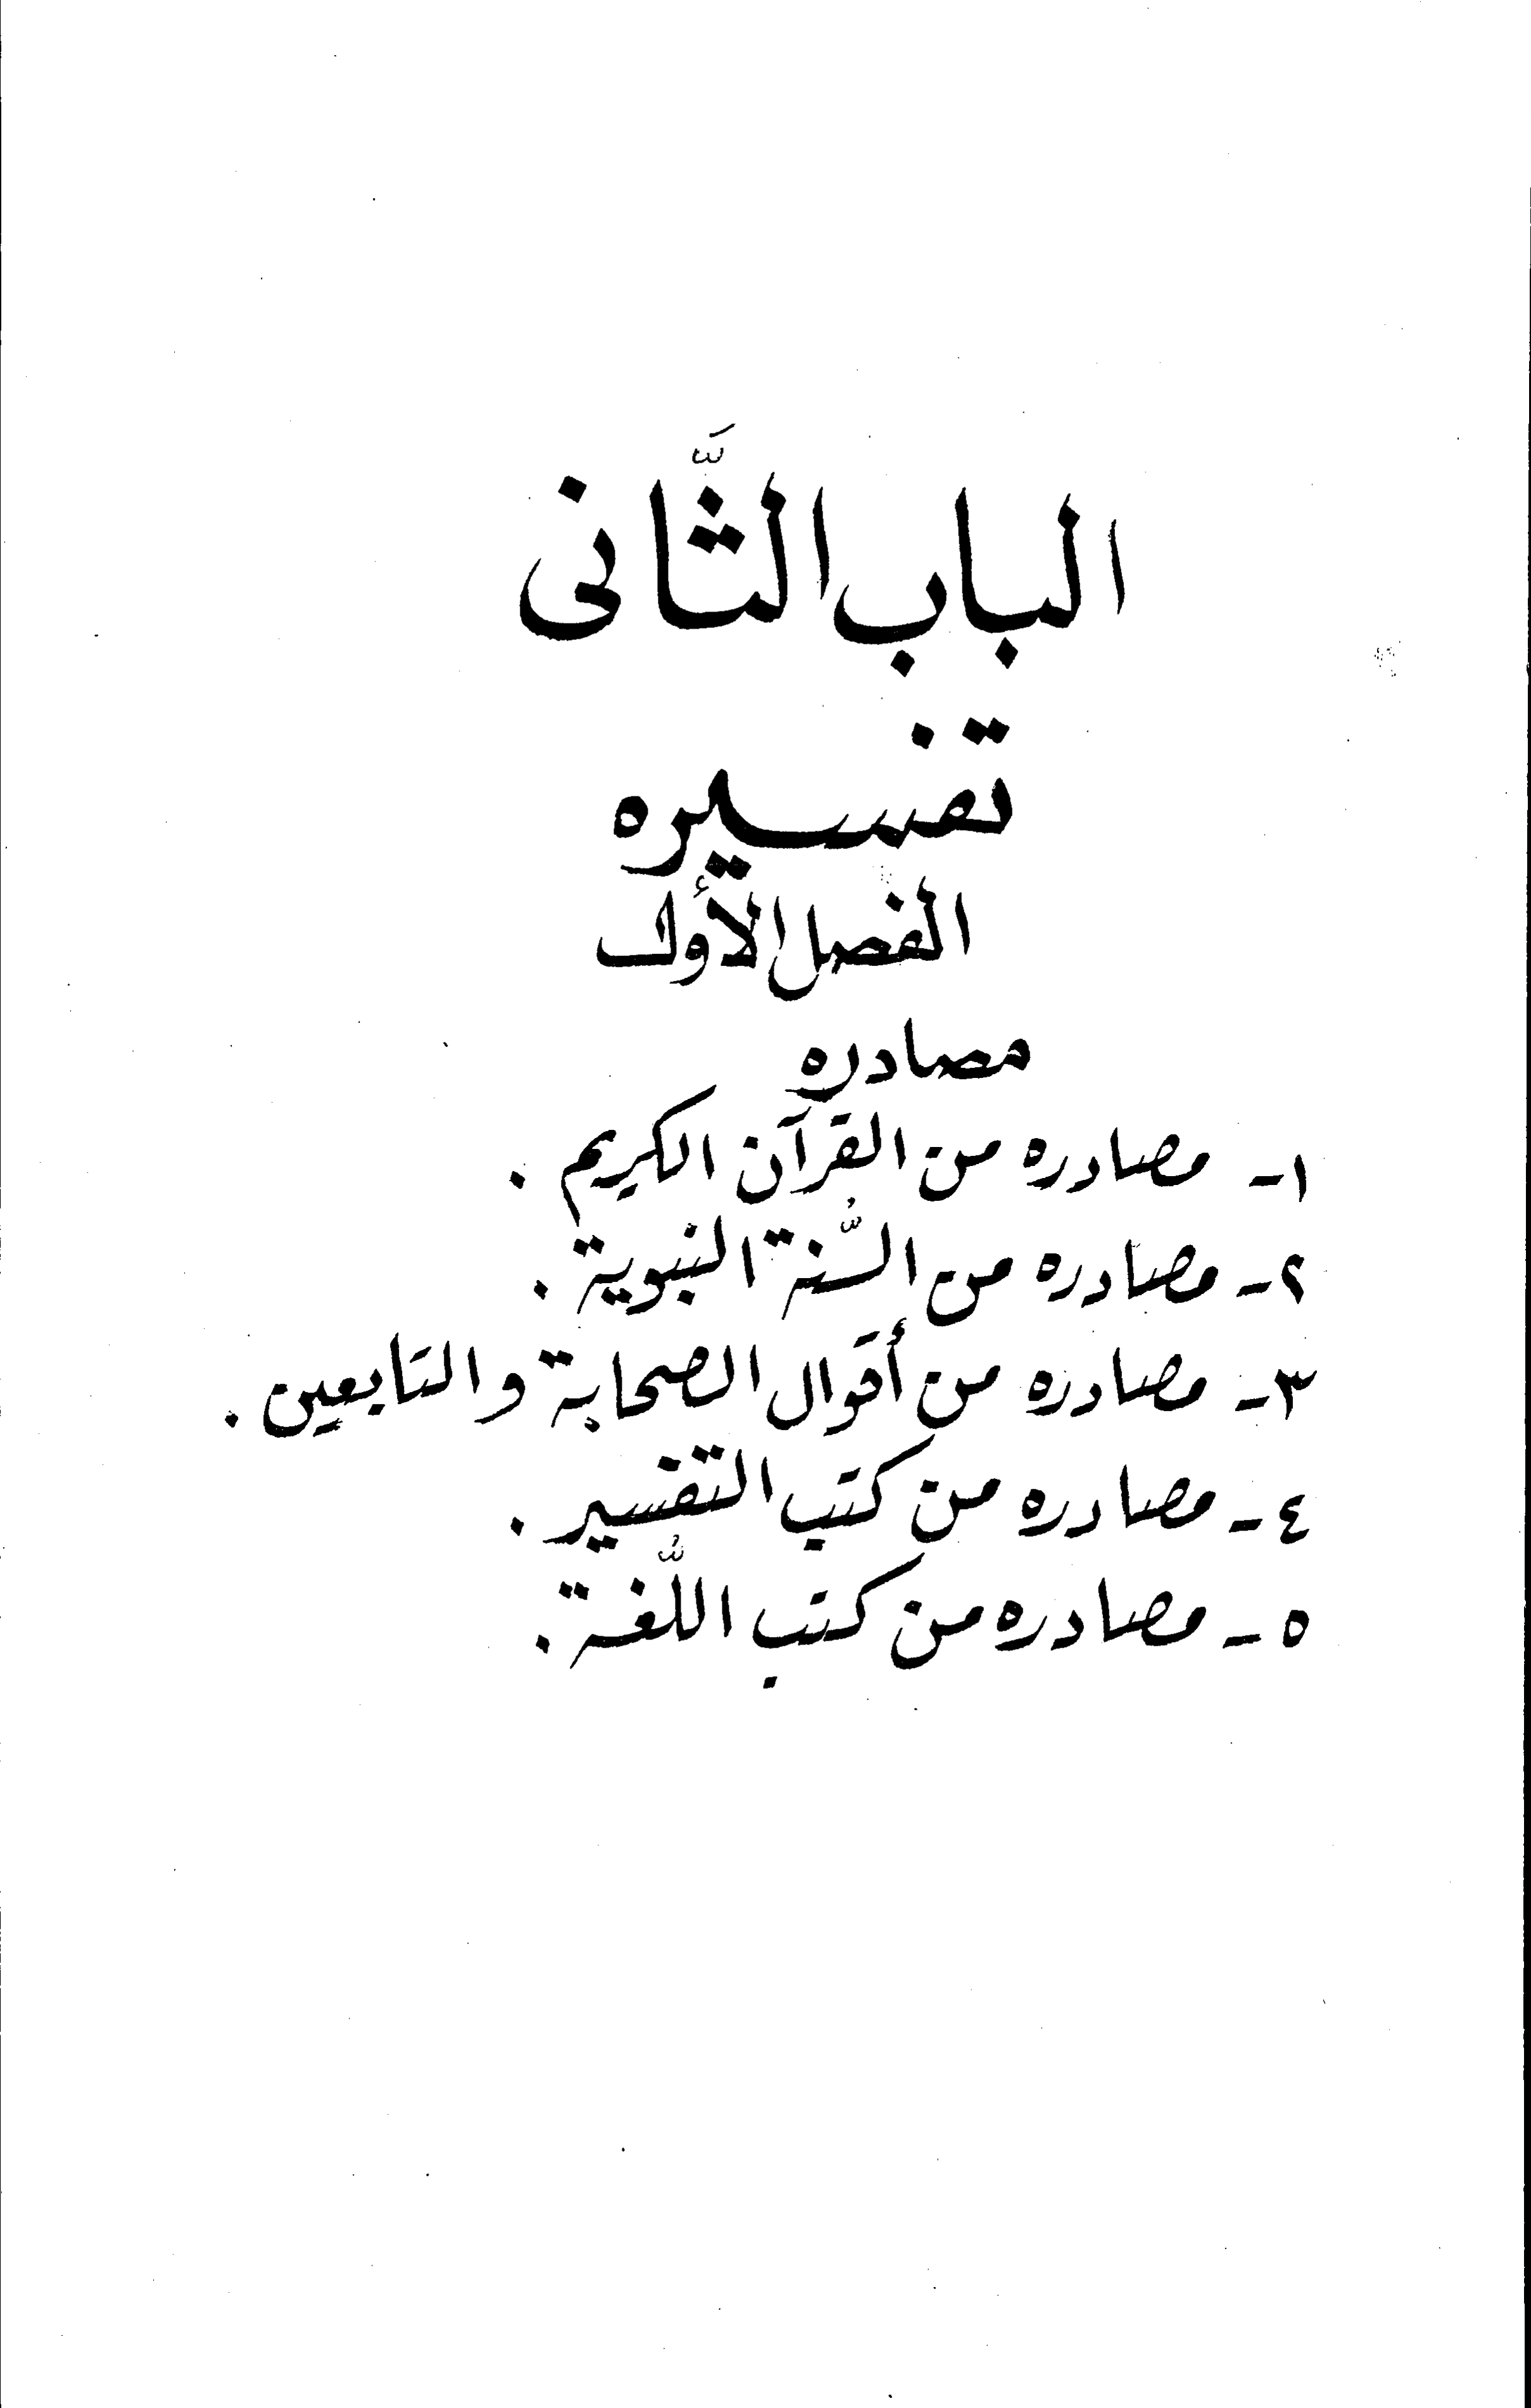 الباب الثَّانى
تفسيره
الفصل الأول
مصادره
١ـ مصادره من القرآن الكريم .
٢ـ مصادره من السُّنة النبوية .
٣ـ مصادره من أقوال الصحابة والتابعين .
٤ـ مصادره من كتب التفسير .
٥ـ مصادره من كتب اللُّغة .